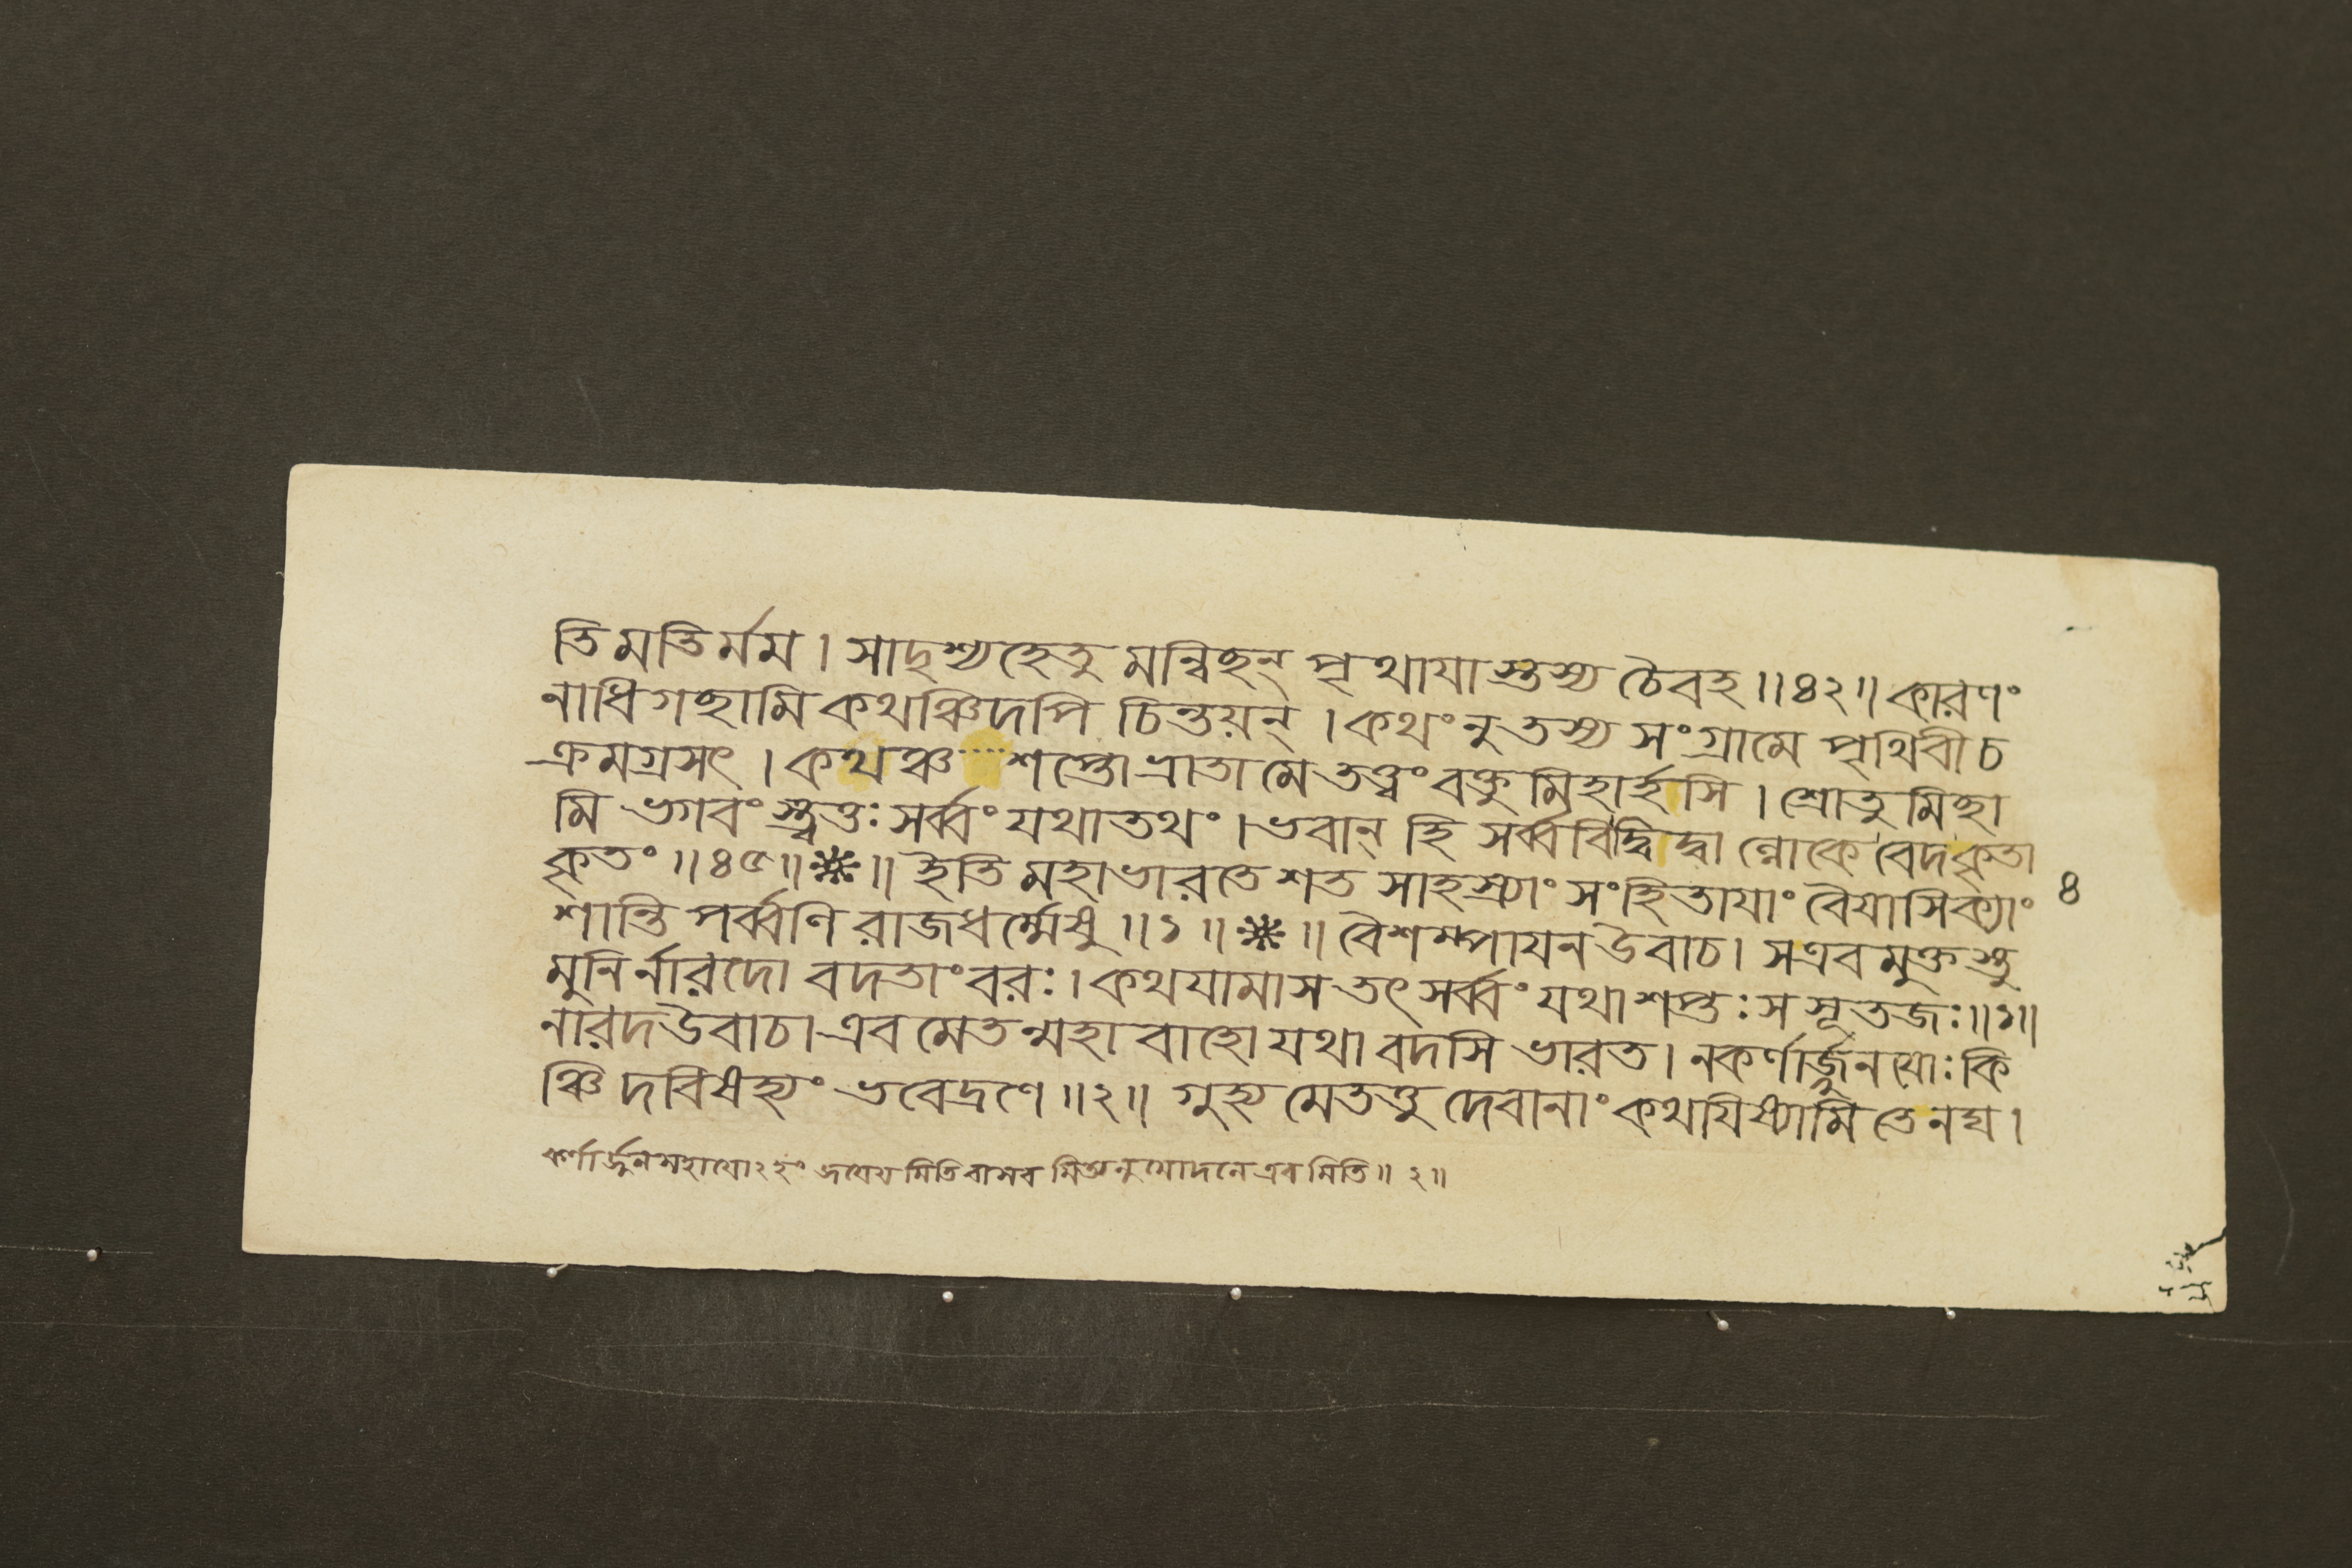 তি মতির্মম। সাদৃশ্যহেতু মন্বিছন্ পৃথাযাস্তস্য চৈবহ॥৪২॥ কারণং
নাধিগছামি কথঞ্চিদপি চিন্তয়ন্। কথং নু তস্য সংগ্রামে পৃথিবী চ
ক্রমগ্রসৎ। কথঞ্চ শপ্তো ভ্রাতা মে তত্ত্বং বক্তুমিহার্হসি। শ্রোতুমিছা
মি ভগবংস্ত্বত্তঃ সর্ব্বং যথাতথং। ভবান্ হি সর্ব্ববিদ্বিদ্বাণ্লোকে বেদকৃতা
কৃতং॥৪৫॥❈॥ ইতি মহাভারতে শত সাহস্র্যাং সংহিতাযাং বৈযাসিক্যাং ৪
শান্তি পর্ব্বণি রাজধর্ম্মেষু॥১॥❈॥ বৈশম্পাযন উবাচ। স এবমুক্তস্তু
মুনির্নারদো বদতাং বরঃ। কথযামাস তৎ সর্ব্বং যথা শপ্তঃ স সূতজঃ॥১॥
নারদ উবাচ। এবমেতন্মহাবাহো যথা বদসি ভারত। ন কর্ণার্জ্জুনযোঃ কি
ঞ্চিদবিষহ্যং ভবেদ্রণে॥২॥ গুহ্যমেতত্তু দেবানাং কথযিষ্যামি তেনঘ।
কর্ণার্জ্জুন এবমিতি॥২॥